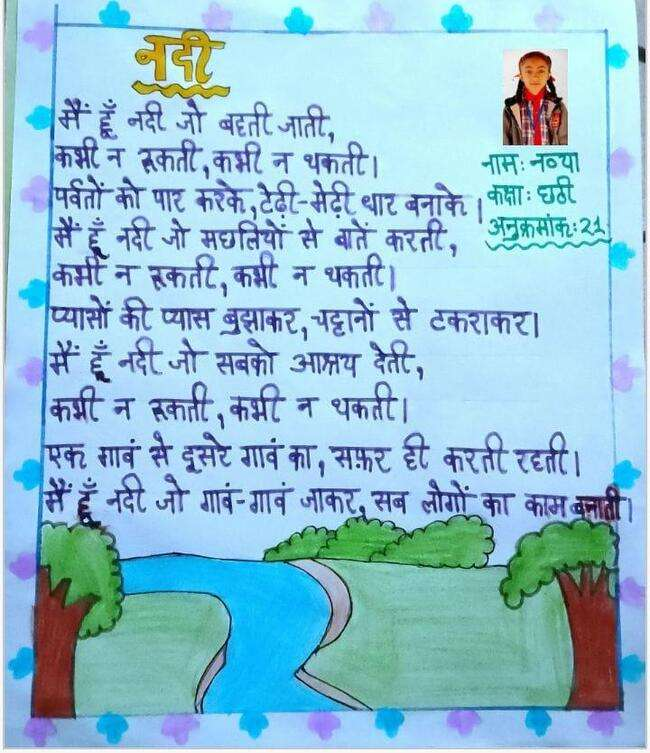 नदी
मैं हूँ नदी जो बहती जाती,
कभी न रूकती, कभी न थकती।
पर्वतों को पार करके, टेढ़ी-मेढ़ी धार बनाके।
मैं हूँ नदी जो मछलियों से बातें करती,
कभी न रूकती, कभी न थकती।
प्यासों की प्यास बुझाकर, चट्टानों से टकराकर।
मैं हूँ नदी जो सबको आश्रय देती,
कभी न रूकती, कभी न थकती।
एक गावं से दूसरे गावं का, सफ़र ही करती रहती।
मैं हूँ नदी जो गावं-गावं जाकर, सब लोगों का काम बनाती।
नाम: नव्या
कक्षा: छठी
अनुक्रमांक: 21